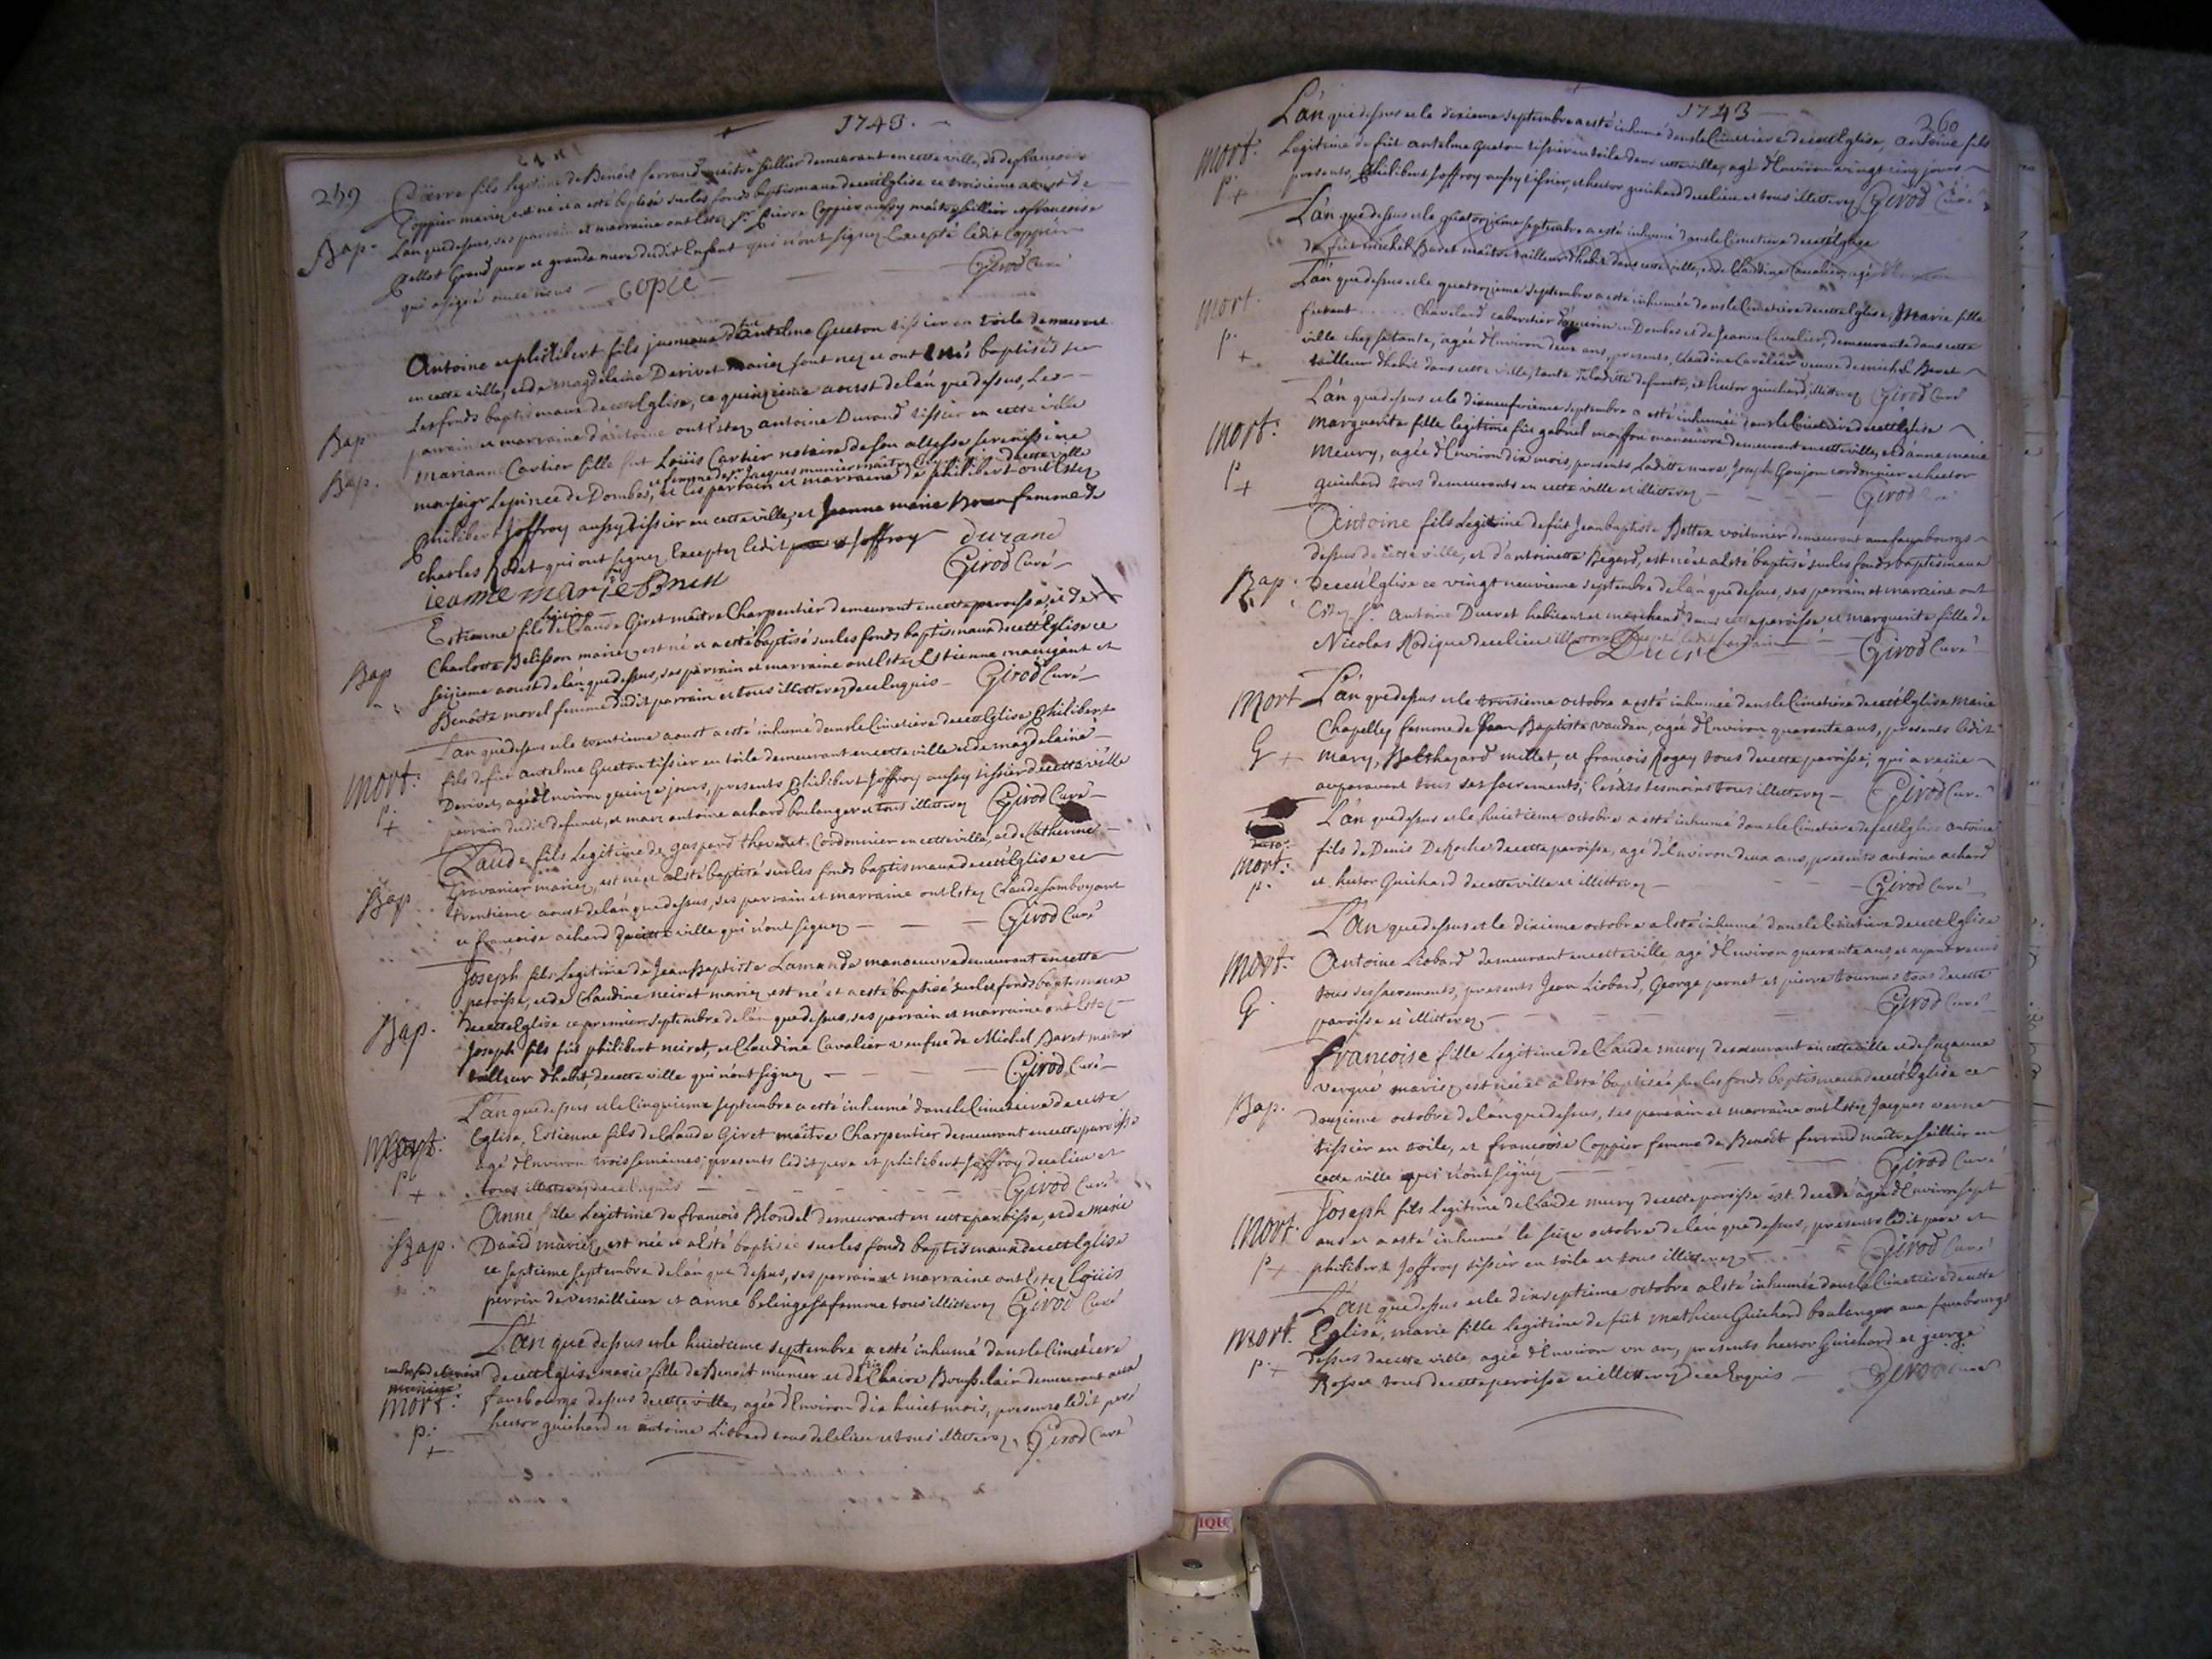 1743.
259
Pierre fils legitime de Benoit ferrand maitre sellier demeurant en cette ville, et de francoise
Coppier mariez est né et a esté baptisé sur les fonds baptismaux de cett Eglise ce troisieme aoust de
Bap. L'an que dessus, ses parrain et marraine ont Estez Sr. Pierre Coppier aussy maitre sellier et francoise
Grand pere et grande mere dudit Enfant qui n'ont signez Excepté ledit Coppier
qui a signé avec nous — copie — Girod Curé
Antoine et philibert fils jumeaux d'antelme Gueton tissier en toile demeurant
en cette ville, et de magdelaine Derivet mariez sont nez et ont baptisés sur
Les fonds baptismaux de cett Eglise, ce quinzieme aoust de l'an que dessus, Les
Bap parrain et marraine d'antoine ont Estez antoine Durand tissier en cette ville
Bap. marianne Cartier fille fut Loüis Cartier notaire de son altesse serenissime
et femme de sr. Jacques munier maitre de cette ville
monseigr Le prince de Dombes, et les parrain et marraine de philibert ont Estez
philibert Joffroy aussy tissier en cette ville, et Jeanne marie Brun femme de
charles Rodet qui ont signez Exceptez ledit Joffroy durand
jeanne marie Brun Girod Curé
legitime
Estienne fils de Claude Giret maitre Charpentier demeurant en cette paroisse, et de
Charlotte Belisson mariez est né et a esté baptisé sur les fonds baptismaux de cett Eglise ce
Bap seizieme aoust de l'an que dessus, ses parrain et marraine ont Estez Estienne et
Benoite morel femme dudit parrain et tous illitterez de ce Enquis — Girod Curé
L'an que dessus et le trentieme aoust a esté inhumé dans le Cimetiere de cett Eglise Philibert
mort. fils de fut antelme Gueton tissier en toile demeurant en cette ville et de magdelaine
p. Derivet, agé d'Environ quinze jours, presents Philibert Joffroy aussy tissier de cette ville
+ parrain dudit defunct, et marc antoine achard boulanger et tous illitterez Girod Curé
Claude fils Legitime de gaspard thevenet Cordonnier en cette ville, et de Catherine
Gravanier mariez, est né et a Esté baptisé sur les fonds baptismaux de cett Eglise ce
Bap trentieme aoust de l'an que dessus, ses parrain et marraine ont Estez Claude
et francoise achard de cette ville qui n'ont signez — Girod Curé
Joseph fils Legitime de Jean Baptiste Lamande manoeuvre demeurant en cette
paroisse, et de Claudine neiret mariez est né et a esté baptisé sur les fonds baptismaux
Bap. de cett Eglise ce premier septembre de l'an que dessus, ses parrain et marraine ont Estez
Joseph fils fut philibert neiret, et Claudine Cavalier veufue de Michel Baret maitre
tailleur d'habit, de cette ville qui n'ont signez — Girod Curé
L'an que dessus et le Cinquieme septembre a esté inhumé dans le Cimetiere de cette
mort. Eglise, Estienne fils de Claude Giret maitre Charpentier demeurant en cette paroisse
p. agé d'Environ trois semaines, presents ledit pere et philibert Joffroy de ce lieu et
+ tous illitterez de ce Enquis — Girod Curé
Anne fille Legitime de francois Blondel demeurant en cette paroisse, et de marie
Bap. David mariez, est née et a Esté baptisée sur les fonds baptismaux de cett Eglise
ce septieme septembre de l'an que dessus, ses parrain et marraine ont Estez Loüis
perrin de versaillieux et anne belinge sa femme tous illitterez Girod Curé
L'an que dessus et le huictieme septembre a esté inhumé dans le Cimetiere
de cett Eglise marie fille de Benoit munier et de Boufselain demeurant aux
mort. fauxbourgs dessus de cette ville, agée d'Environ dix huict mois, presents ledit pere
p. + hector guichard et antoine Liobard tous de ce lieu et tous illitterez, Girod Curé
1743
260
L'an que dessus et le dixieme septembre a esté inhumé dans le Cimetiere de cett Eglise, antoine fils
mort. Legitime de fut antelme Gueton tissier en toile dans cette ville, agé d'Environ vingt cinq jours
p. + presents, Philibert Joffroy aussy tissier, et hector guichard de ce lieu et tous illitterez Girod Curé
L'an que dessus et le quatorzieme septembre a esté inhumé dans le Cimetiere de cett Eglise
de fut michel Baret maitre tailleur d'habit dans cette ville, et de Claudine Cavalier, agé d'Environ
L'an que dessus et le quatorzieme septembre a esté inhumée dans le Cimetiere de cett Eglise, Marie fille
mort. fut Chavelard cabaretier en Dombes et de Jeanne Cavalier, demeurante dans cette
p. ville chez sa tante, agée d'Environ deux ans, presents, Claudine Cavalier veuve de michel Baret
+ tailleur d'habit dans cette ville, tante de ladite defuncte, et hector guichard, illitterez Girod Curé
L'an que dessus et le dixneufvieme septembre a esté inhumée dans le Cimetiere de cett Eglise
mort. marguerite fille legitime fut gabriel moisson manoeuvre demeurant en cette ville, et d'anne marie
p meury, agée d'Environ dix mois, presents, Ladite mere, Joseph Goujon cordonnier et hector
+ guichard tous demeurants en cette ville et illitterez — Girod Curé
Antoine fils Legitime de fut Jean baptiste Bottex voiturier demeurant aux fauxbourgs
dessus de cette ville, et d'antoinette Begard, est né et a Esté baptisé sur les fonds baptismaux
Bap. de cett Eglise ce vingt neuvieme septembre de l'an que dessus, ses parrain et marraine ont
Estez Sr. Antoine Ducret habitant et marchand dans cette paroisse et marguerite fille de
Nicolas Rodique de ce lieu Ducret Girod Curé
Mort L'an que dessus et le troisieme octobre a esté inhumée dans le Cimetiere de cett Eglise marie
Chapelley femme de Jean Baptiste vaudan, agé d'Environ quarante ans, presents ledit
G + mary, Balthazard millet, et francois Rogay tous de cette paroisse, qui a reçüe
auparavant tous ses sacrements, lesdits tesmoins tous illitterez — Girod Curé
L'an que dessus et le huictieme octobre a esté inhumé dans le Cimetiere de cett Eglise antoine
mort. fils de Denis DeRoche de cette paroisse, agé d'Environ deux ans, presents antoine achard
p. et hector Guichard de cette ville et illitterez — Girod Curé
L'an que dessus et le dixieme octobre a Esté inhumé dans le Cimetiere de cett Eglise
mort. Antoine Liobard demeurant en cette ville, agé d'Environ quarante ans, et ayant receus
G tous ses sacrements, presents Jean Liobard, George pernet et pierre tournus tous de cette
paroisse et illitterez — Girod Curé
francoise fille Legitime de Claude mury demeurant en cette ville et de suzanne
vergue mariez, est née et a Esté baptisée sur les fonds baptismaux de cett Eglise ce
Bap. douzieme octobre de l'an que dessus, ses parrain et marraine ont Estez Jacques verne
tissier en toile, et francoise Coppier femme de Benoit ferrand maitre sellier en
cette ville qui n'ont signez — Girod Curé
mort. Joseph fils legitime de Claude mury de cette paroisse est decedé agé d'Environ sept
ans et a esté inhumé le seize octobre de l'an que dessus, presents ledit pere et
p + philibert Joffroy tissier en toile et tous illitterez — Girod Curé
L'an que dessus et le dixseptieme octobre a Esté inhumée dans le Cimetiere de cette
mort. Eglise, marie fille legitime de fut mathieu Guichard boulanger aux fauxbourgs
p. + dessus de cette ville, agée d'Environ un an, presents hector Guichard et george
Rosset tous de cette paroisse et illitterez de ce Enquis — Girod Curé